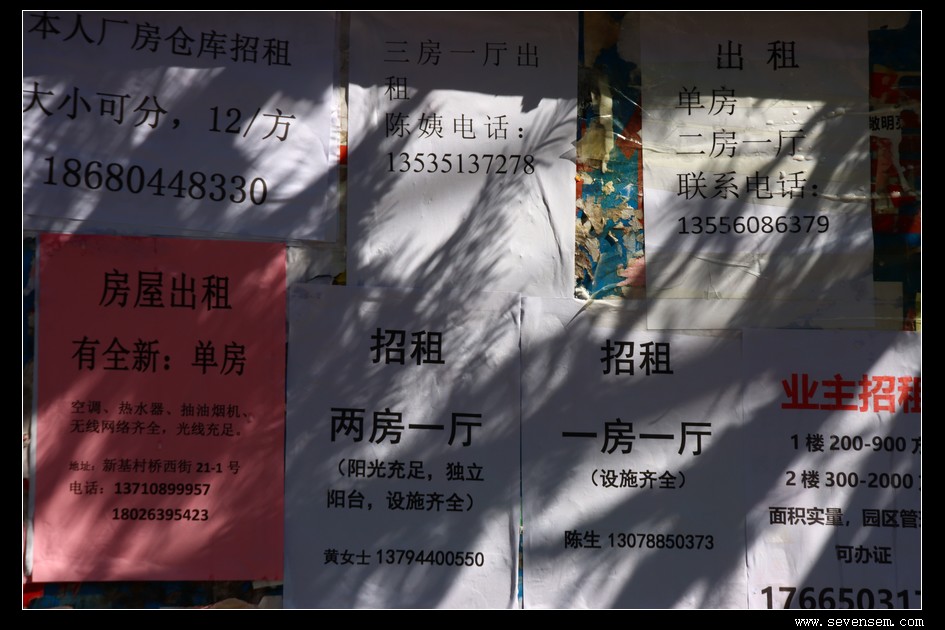 本人厂房仓库招租
大小可分，12/方
18680448330
三房一厅出
租
陈姨电话：
13535137278
出 租
单房
二房一厅
联系电话：
13556086379
敞明
房屋出租
有全新：单房
空调、热水器、抽油烟机、
无线网络齐全，光线充足。
地址：新基村桥西街 21-1 号
电话：13710899957
18026395423
招租
两房一厅
（阳光充足，独立
阳台，设施齐全）
黄女士 13794400550
招租
一房一厅
（设施齐全）
陈生 13078850373
业主招租
1 楼 200-900 方
2 楼 300-2000
面积实量，园区管
可办证
176650317
www.sevensem.com